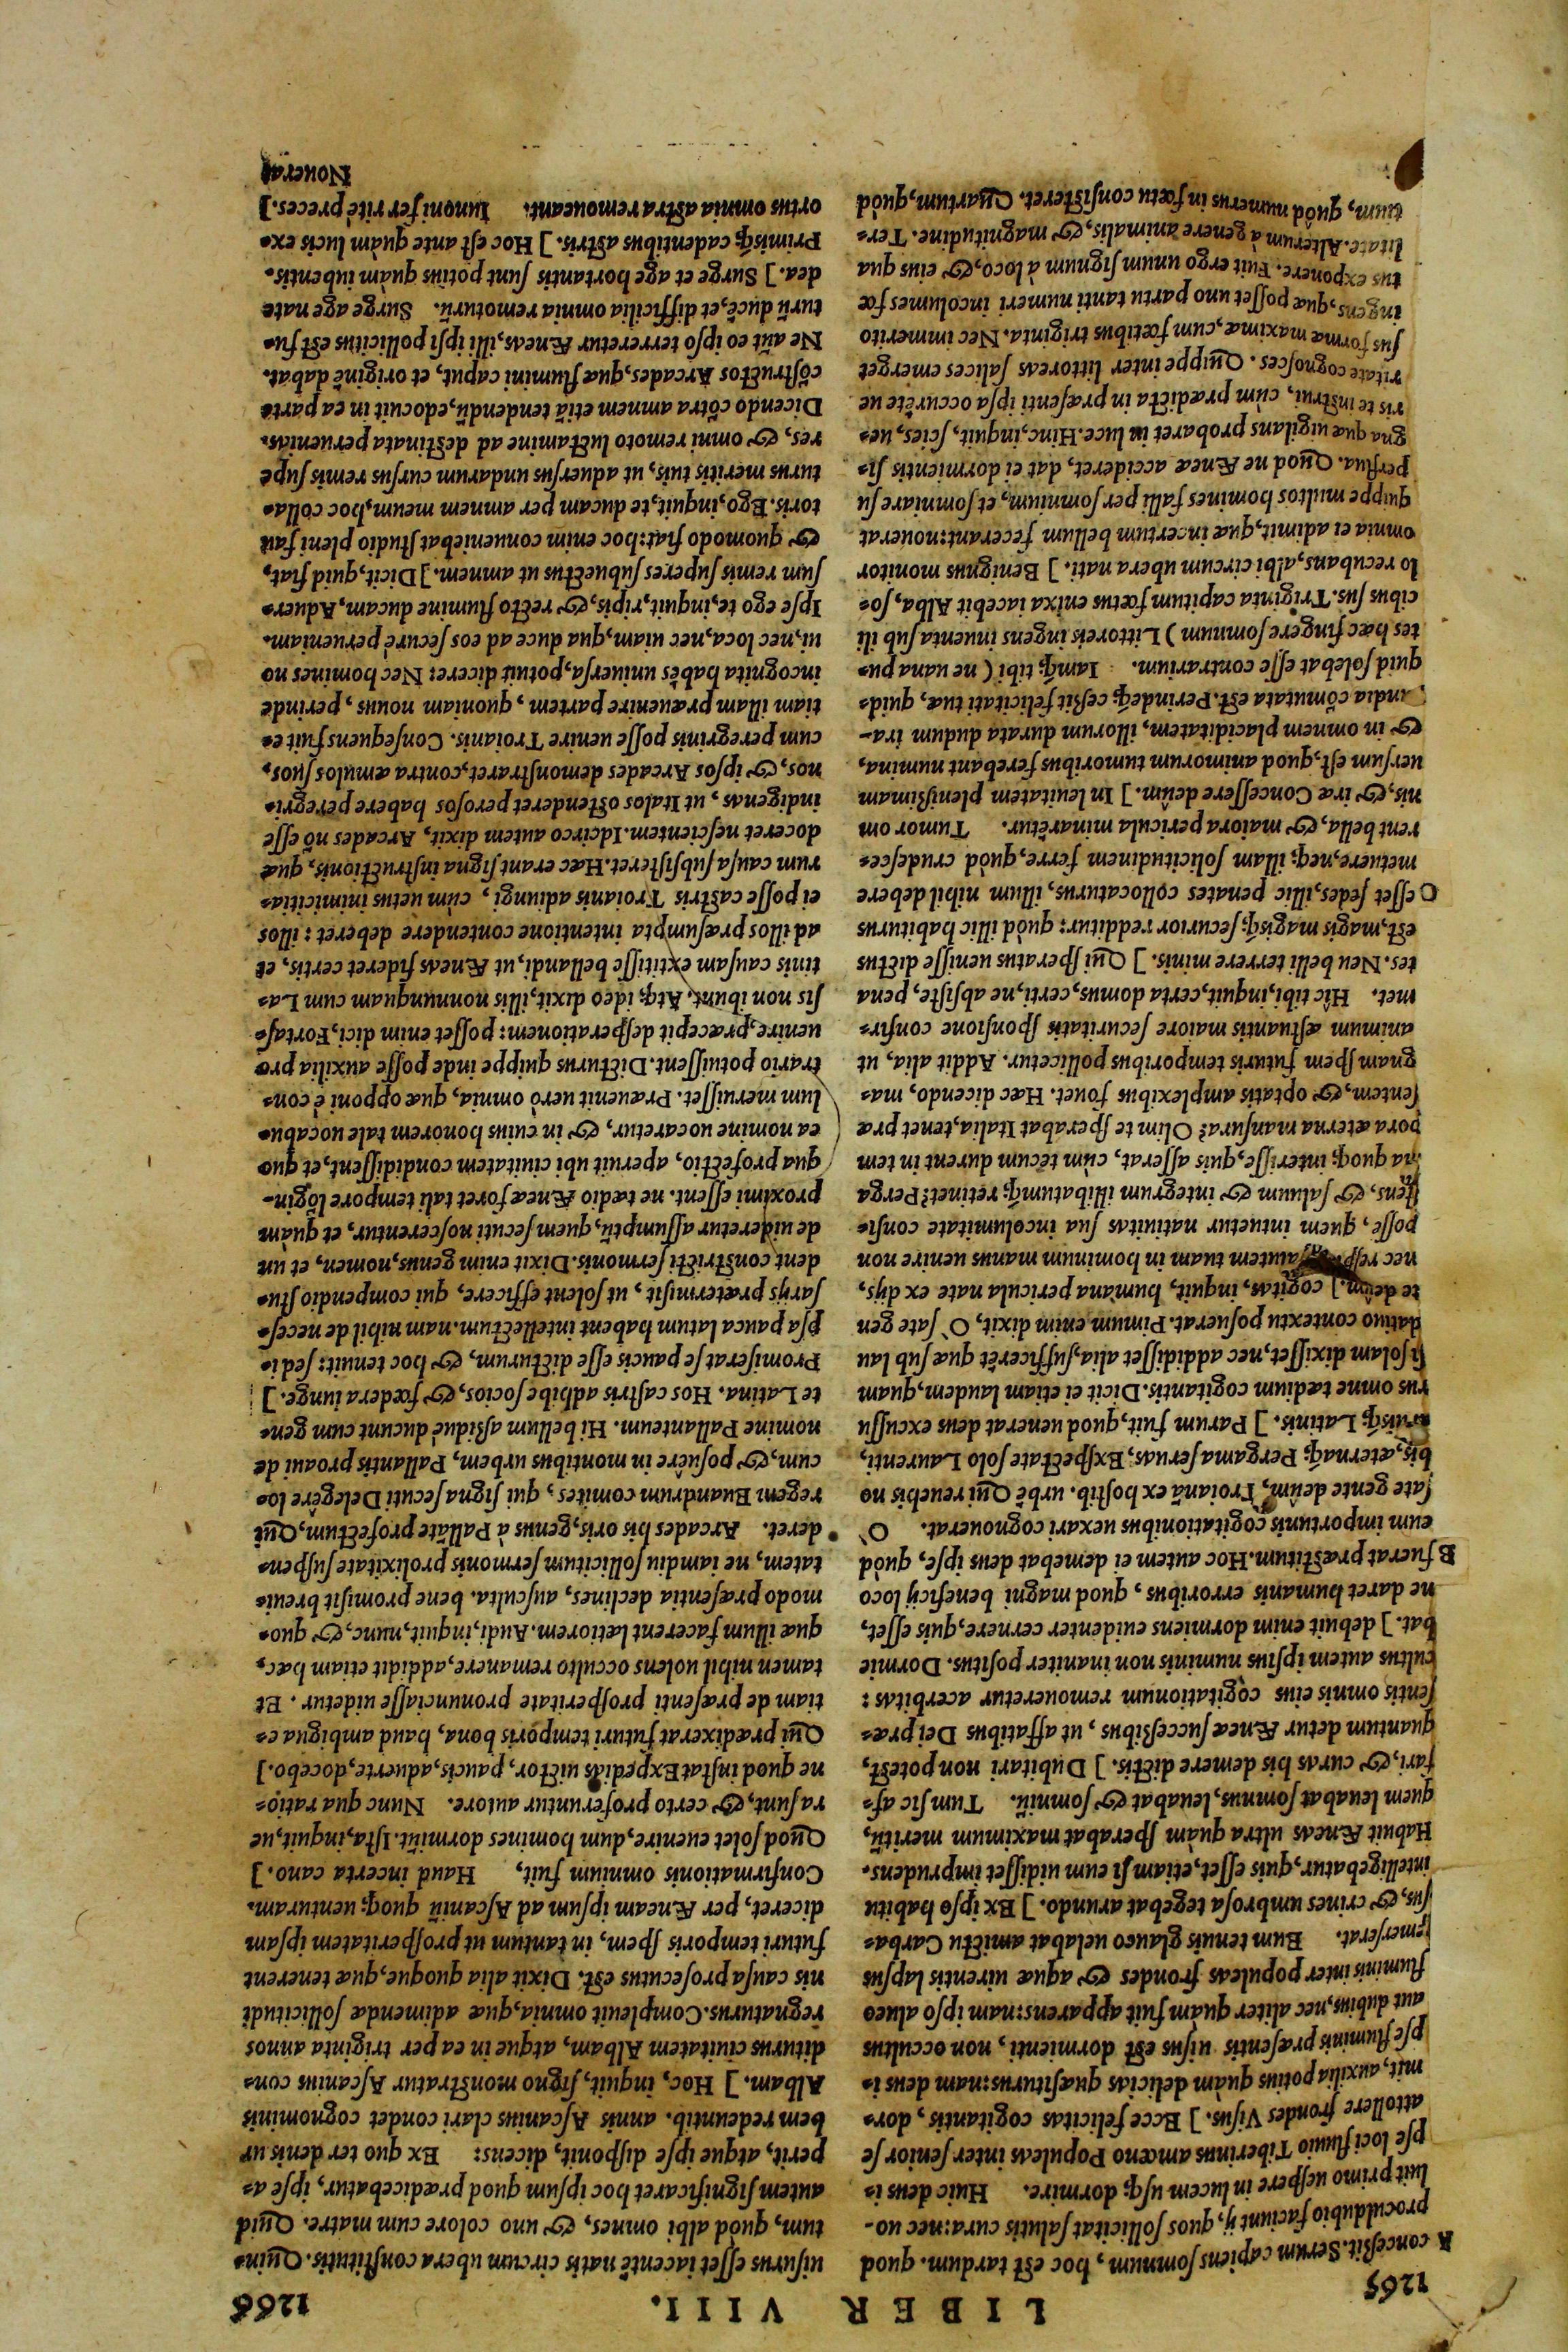 LIBER VIII.
1265
A conceßit. Serum capiens somnum, hoc est tardum. quod
proculdubio faciunt ij, quos sollicitat salutis cura: nec uo-
luit primo uespere in lucem usq; dormire. Huic deus i=
pse loci fluuio Tiberinus amœno Populeas inter senior se
attollere frondes Visus.] Ecce felicitas cogitantis, dor=
mit, auxilia potius quàm delicias quæsiturus: nam deus i=
pse fluminis præsentis uisus est dormienti, non occultus
aut dubius, nec aliter quàm fuit apparens: nam ipso alueo
fluminis inter populeas frondes & aquæ uirentis lapsus
emerserat. Eum tenuis glauco uelabat amictu Carba=
sus, & crines umbrosa tegebat arundo.] Ex ipso habitu
intelligebatur, quis esset, etiam si eum uidisset imprudens.
Habuit Æneas ultra quàm sperabat maximum meritũ,
quem leuabat somnus, leuabat & somniũ. Tum sic af=
fari, & curas his demere dictis.] Dubitari non potest,
quantum detur Æneæ successibus, ut affatibus Dei præ=
sentis omnis eius cogitationum remoueretur acerbitas:
cultus autem ipsius numinis non inaniter positus. Dormie
bat.] debuit enim dormiens euidenter cernere, quis esset,
ne daret humanis erroribus, quod magni beneficij loco
B fuerat præstitum. Hoc autem ei demebat deus ipse, quòd
eum importunis cogitationibus uexari cognouerat. O
sate gente deûm, Troianã ex hostib. urbẽ Qui reuehis no
bis, æternaq́; Pergama seruas, Exspectate solo Laurenti,
aruisq́; Latinis.] Parum fuit, quod uenerat deus excussu
rus omne tædium cogitantis. Dicit ei etiam laudem, quam
si solam dixisset, nec addidisset alia, sufficerẽt quæ sub lau
datiuo contextu posuerat. Pimum enim dixit, O sate gen
te deûm.] cogitas, inquit, humana pericula nate ex dijs,
nec autem tuam in hominum manus uenire non
posse, quem intuetur natiuitas sua incolumitate consi=
stens, & saluum & integrum illibatumq́; retinet? Perga
ma quoq; interisse, quis asserat, cùm tecum durent in tem
pora æterna mansura? Olim te sperabat Italia, tenet præ
sentem, & optatis amplexibus fouet. Hæc dicendo, ma=
gnam spem futuris temporibus pollicetur. Addit alia, ut
animum æstuantis maiore securitatis sponsione confir=
met. Hîc tibi, inquit, certa domus, certi, ne absiste, pena
tes. Neu belli terrere minis.] Qui speratus uenisse dictus
est, magis magisq́; securior redditur: quòd illic habiturus
C esset sedes, illic penates collocaturus, illum nihil debere
metuere, neq; illam solicitudinem ferre, quòd crudesce=
rent bella, & maiora pericula minarẽtur. Tumor om
nis, & iræ Concessere deûm.] In leuitatem plenißimam
uersum est, quod animorum tumoribus ferebant numina,
& in omnem placiditatem, illorum durata dudum ira-
cundia cõmutata est. Perindeq́; ceßit felicitati tuæ, quid=
quid solebat esse contrarium. Iamq́; tibi (ne uana pu=
tes hæc fingere somnum) Littoreis ingens inuenta sub ili
cibus sus. Triginta capitum fœtus enixa iacebit Alba, so=
lo recubans, albi circum ubera nati.] Benignus monitor
omnia ei adimit, quæ incertum bellum fecerant: nouerat
quippe multos homines falli per somnium, et somniare su
perflua. Quod ne Æneæ accideret, dat ei dormientis si=
gna quæ uigilans probaret in luce. Hinc, inquit, scies, ue=
ris te instrui, cùm prædicta in præsenti ipsa occurẽte ue
ritate cognosces. Quippe inter littoreas salices emerget
sus formæ maximæ, cum fœtibus triginta. Nec immerito
ingens, quæ posset uno partu tanti numeri incolumes fœ
tus exponere. Fuit ergo unum signum à loco, & eius qua
litate. Alterum à genere animalis, & magnitudine. Ter=
tium, quòd numerus in fœtu consisteret. Quartum, quòd
1266
uisurus esset iacentẽ natis circum ubera constitutis. Quin=
tum, quòd albi omnes, & uno colore cum matre. Quid
autem significaret hoc ipsum quod prædicebatur, ipse a=
perit, atque ipse disponit, dicens: Ex quo ter denis ur
bem redeuntib. annis Ascanius clari condet cognominis
Albam.] Hoc, inquit, signo monstratur Ascanius con=
diturus ciuitatem Albam, atque in ea per triginta annos
regnaturus. Compleuit omnia, quæ adimendæ sollicitudi
nis causa prosecutus est. Dixit alia quoque, quæ tenerent
futuri temporis spem, in tantum ut prosperitatem ipsam
diceret, per Æneam ipsum ad Ascaniũ quoq; uenturam.
Confirmationis omnium fuit, Haud incerta cano.]
Quod solet euenire, dum homines dormiũt. Ista, inquit, ue
ra sunt, & certo proferuntur autore. Nunc qua ratio=
ne quod instat Expedias uictor, paucis, aduerte, docebo.]
Qui prædixerat futuri temporis bona, haud ambigua e=
tiam de præsenti prosperitate pronunciasse uidetur. Et
tamen nihil uolens occulto remanere, addidit etiam hæc,
quæ illum facerent lætiorem. Audi, inquit, nunc, & quo=
modo præsentia declines, ausculta. bene promisit breui=
tatem, ne iamdiu sollicitum sermonis prolixitate suspen=
deret. Arcades his oris, genus à Pallãte profectum, Qui
regem Euandrum comites, qui signa secuti Delegêre lo=
cum, & posuêre in montibus urbem, Pallantis proaui de
nomine Pallanteum. Hi bellum aßiduè ducunt cum gen=
te Latina. Hos castris adhibe socios, & fœdera iunge.]
Promiserat se paucis esse dicturum, & hoc tenuit: sed i=
psa pauca latum habent intellectum. nam nihil de neces=
sarijs prætermisit, ut solent efficere, qui compendio stu=
dent constricti sermonis. Dixit enim genus, nomen, et un
de uideretur assumptũ, quem secuti noscerentur, et quàm
proximi essent. ne tædio Æneæ foret tali tempore lõgin-
qua profectio, aperuit ubi ciuitatem condidissent, et quo
ea nomine uocaretur, & in cuius honorem tale uocabu=
lum meruisset. Præuenit uerò omnia, quæ opponi è con=
trario potuissent. Dicturus quippe inde posse auxilia pro
uenire, præcepit desperationem: posset enim dici, Fortas=
sis non ibunt. Atq; ideo dixit, illis nonnunquam cum La=
tinis causam extitisse bellandi, ut Æneas fideret certis, et
ad illos præsumpta intentione contendere deberet: illos
ei posse castris Troianis adiungi, cùm uetus inimicitia=
rum causa subsisteret. Hæc erant signa instructionis, quæ
doceret nescientem. Idcirco autem dixit, Arcades nõ esse
indigenas, ut Italos ostenderet perosos habere peregri=
nos, & ipsos Arcades demonstraret, contra æmulos suos,
cum peregrinis posse uenire Troianis. Consequens fuit e=
tiam illam præuenire partem, quoniam nouus, perinde
incognita habẽs uniuersa, potuit dicere: Nec homines no
ui, nec loca, nec uiam, qua duce ad eos securè perueniam.
Ipse ego te, inquit, ripis, & recto flumine ducam, Aduer=
sum remis superes subuectus ut amnem.] Dicit, quid fiat,
& quomodo fiat: hoc enim conueniebat studio pleni fau
toris. Ego, inquit, te ducam per amnem meum, hoc colla=
turus meritis tuis, ut aduersus undarum cursus remis supe
res, & omni remoto luctamine ad destinata peruenias.
Dicendo cõtra amnem etiã tendendũ, edocuit in ea parte
cõstructos Arcades, quæ flumini caput, et originẽ dabat.
Ne aũt eo ipso terreretur Æneas, illi ipsi pollicitus est fu=
turũ ducẽ, et difficilia omnia remoturũ. Surge age nate
dea.] Surge et age hortantis sunt potius quàm iubentis.
Primisq́; cadentibus astris.] Hoc est ante quàm lucis ex=
ortus omnia astra remoueant. Iunoni fer ritè preces.]
Nouerat